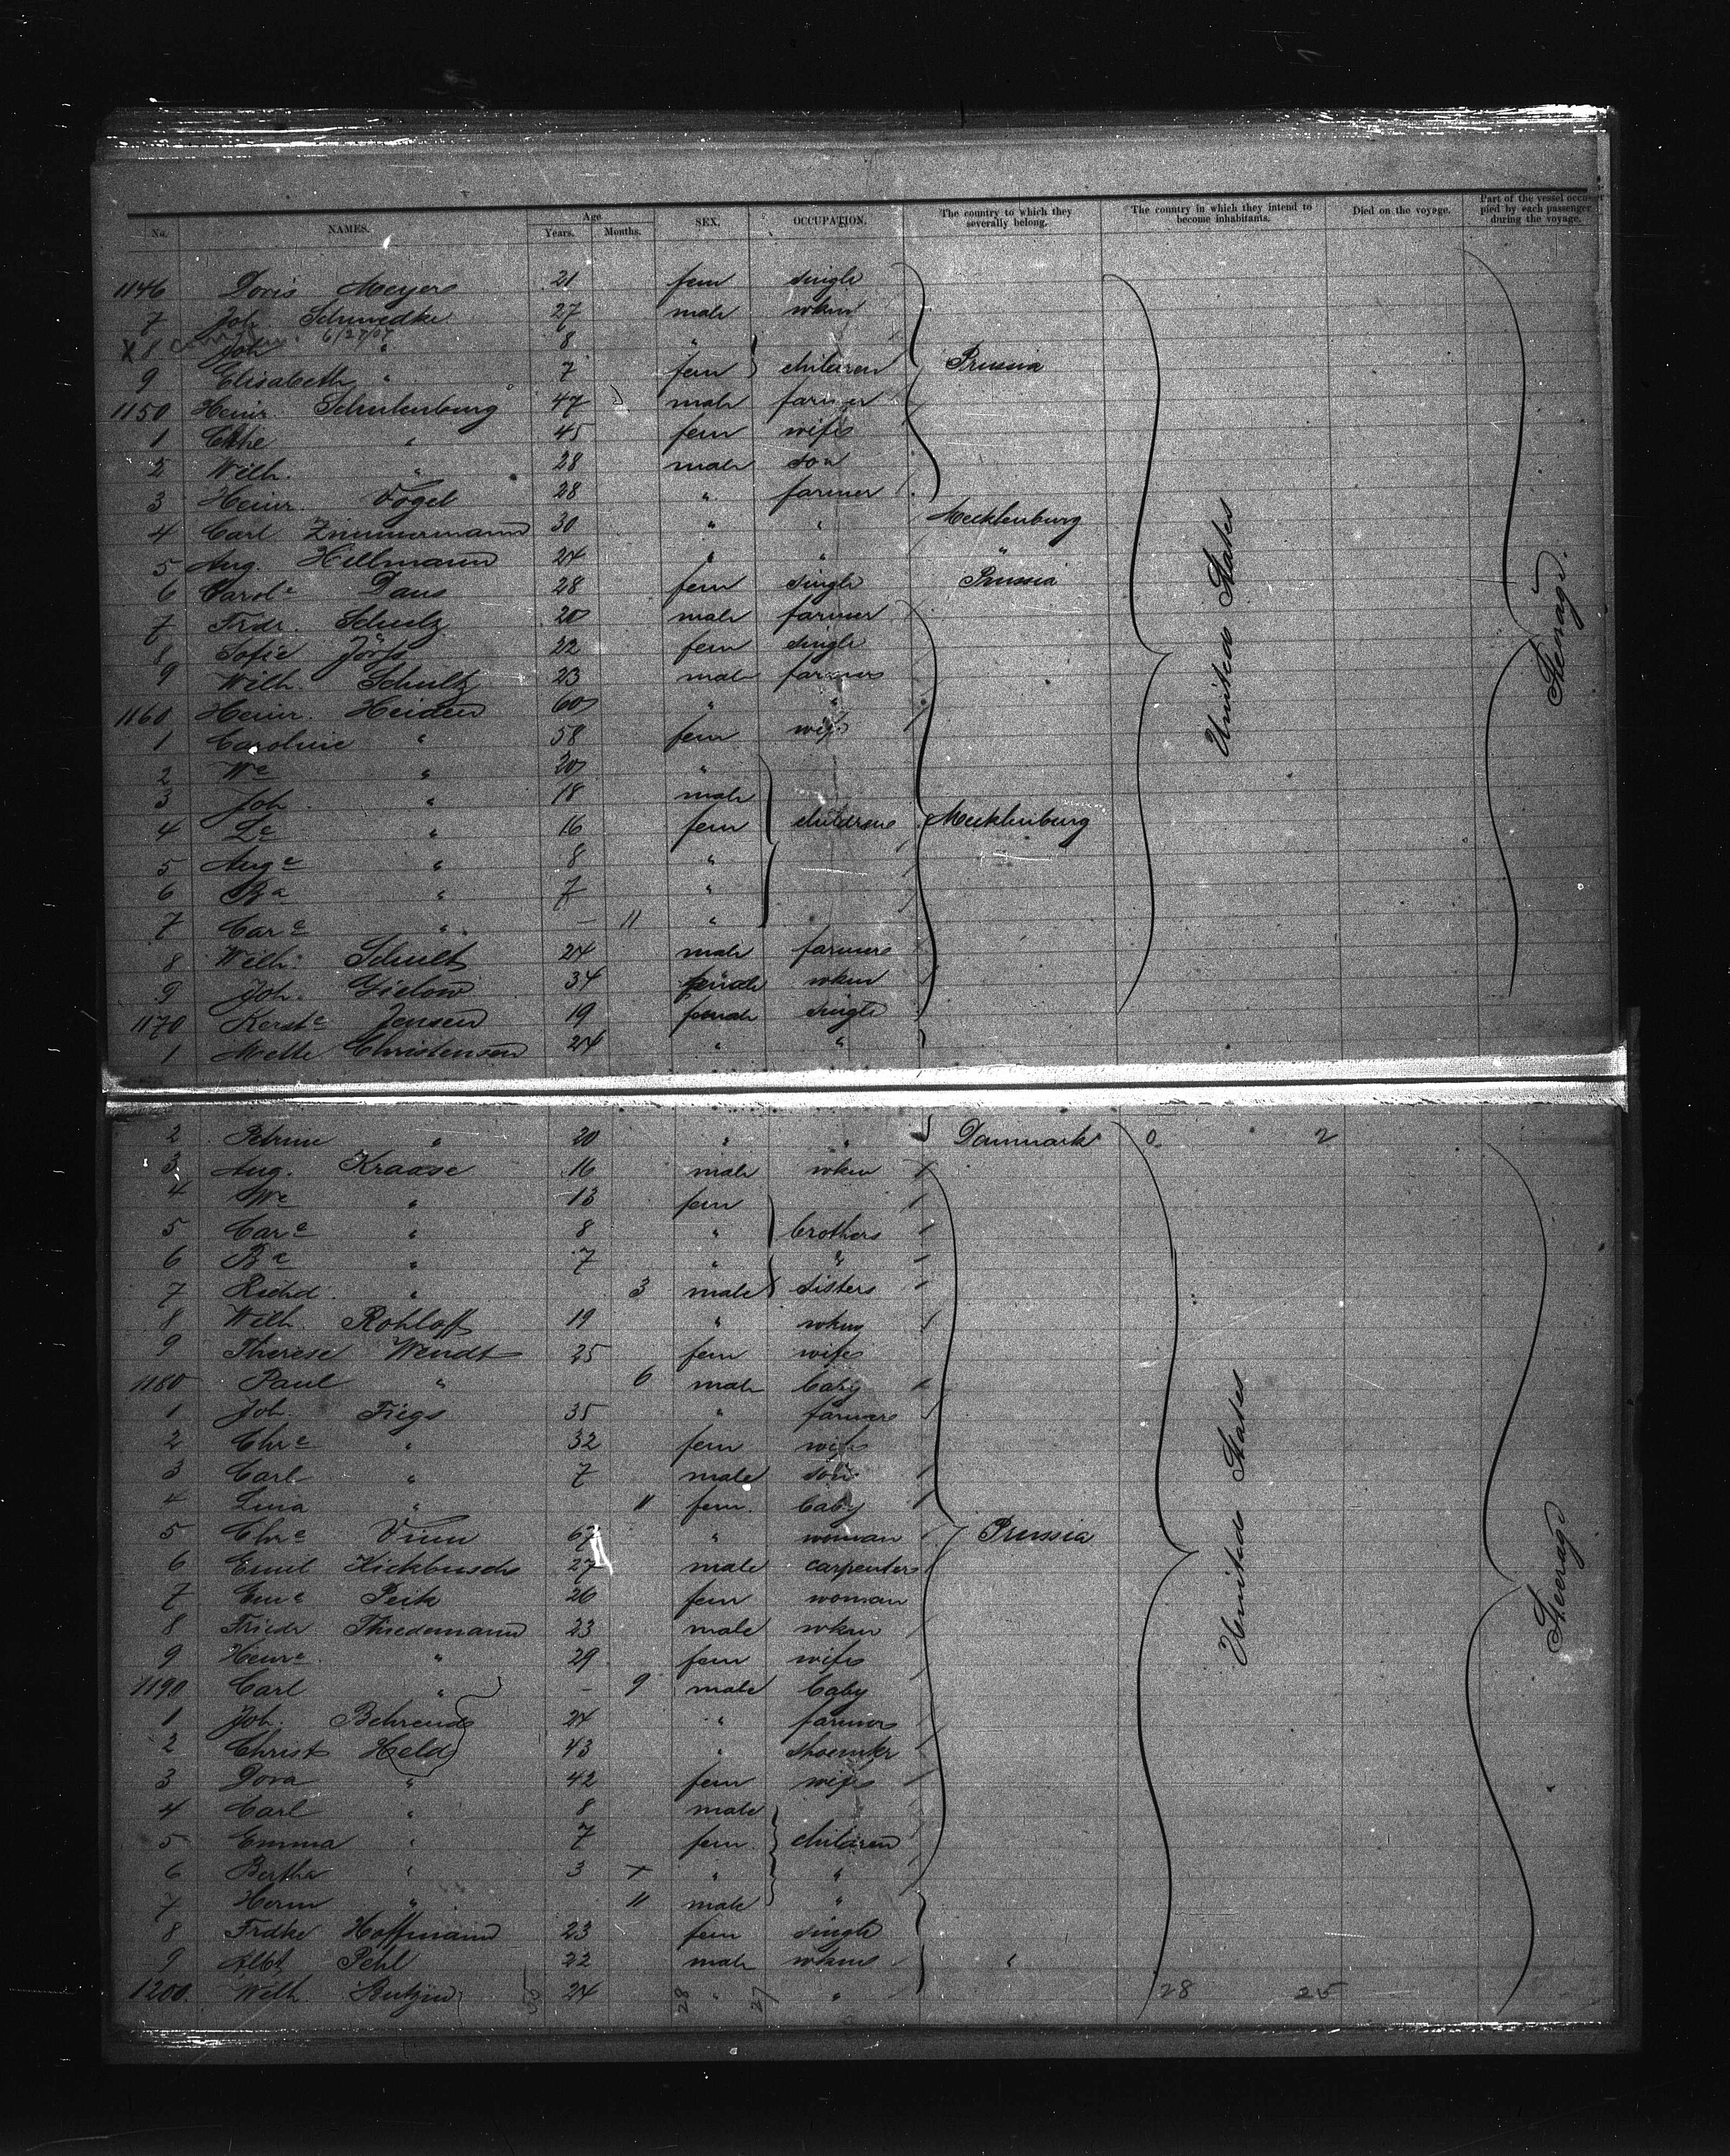 No. NAMES. Age Years. Months. SEX. OCCUPATION. The country to which they severally belong. The country in which they intend to become inhabitants. Died on the voyage. Part of the vessel occupied by each passenger during the voyage.
1146 Doris Meyer 21 fem single
7 Joh. Schwedke 27 male wkm
6/27/07
X 8 Joh " 8 "
9 Elisabeth " 7 fem children Prussia
1150 Heinr. Schulenburg 47 male farmer
1 " 45 fem wife
2 Wilh. " 28 male son
3 Heinr. Vogel 28 " farmer
4 Carl Zimmermann 30 " " Mecklenburg
5 Aug. Hellmann 24 " " "
6 Carole Dau 28 fem single Prussia
7 Frdr. Schulz 20 male farmer
8 Sofie 22 fem single
9 Wilh. Schultz 23 male farmer
1160 Heinr. Heiden 60 " "
1 Caroline " 58 fem wife
2 We " 20 "
3 Joh " 18 male
4 Le " 16 fem children Mecklenburg
5 Auge " 8 "
6 Ba " 7 "
7 Care " – 11 "
8 Wilh. Schult 24 male farmer
9 Joh. Gielow 34 male wkm
1170 Kerste Jensen 19 female single
1 Mette Christensen 24 " "
United States
Steerage.
2 Petrine " 20 " " Danmark 0 2
3 Aug. Kraase 16 male wkm
4 We " 13 fem
5 Care " 8 " brothers
6 Be " 7 " "
7 Richd. " 3 male sisters
8 Wilh. Rohloff 19 " wkm
9 Therese Wendt 25 fem wife
1180 Paul " 6 male baby
1 Joh. Fiegs 35 " farmer
2 Chre " 32 fem wife
3 Carl " 7 male son
4 Lina " 11 fem. baby
5 Chre 67 " woman Prussia
6 Emil Kickbusch 27 male carpenter
7 Eme Peik 26 fem woman
8 Friedr Thiedemann 23 male wkm
9 Henre. " 29 fem wife
1190 Carl " – 9 male baby
1 Joh. Behrend 24 " farmer
2 Christ Held 43 " shoemkr
3 Dora " 42 fem wife
4 Carl " 8 male
5 Emma " 7 fem. children
6 Bertha " 3 " "
7 Herm " 11 male "
8 Frdke Hoffmann 23 fem single
9 Albt Pehl 22 male wkm "
1200. Wilh. Butzin 24 " " 28 25
28 27
United States
Steerage